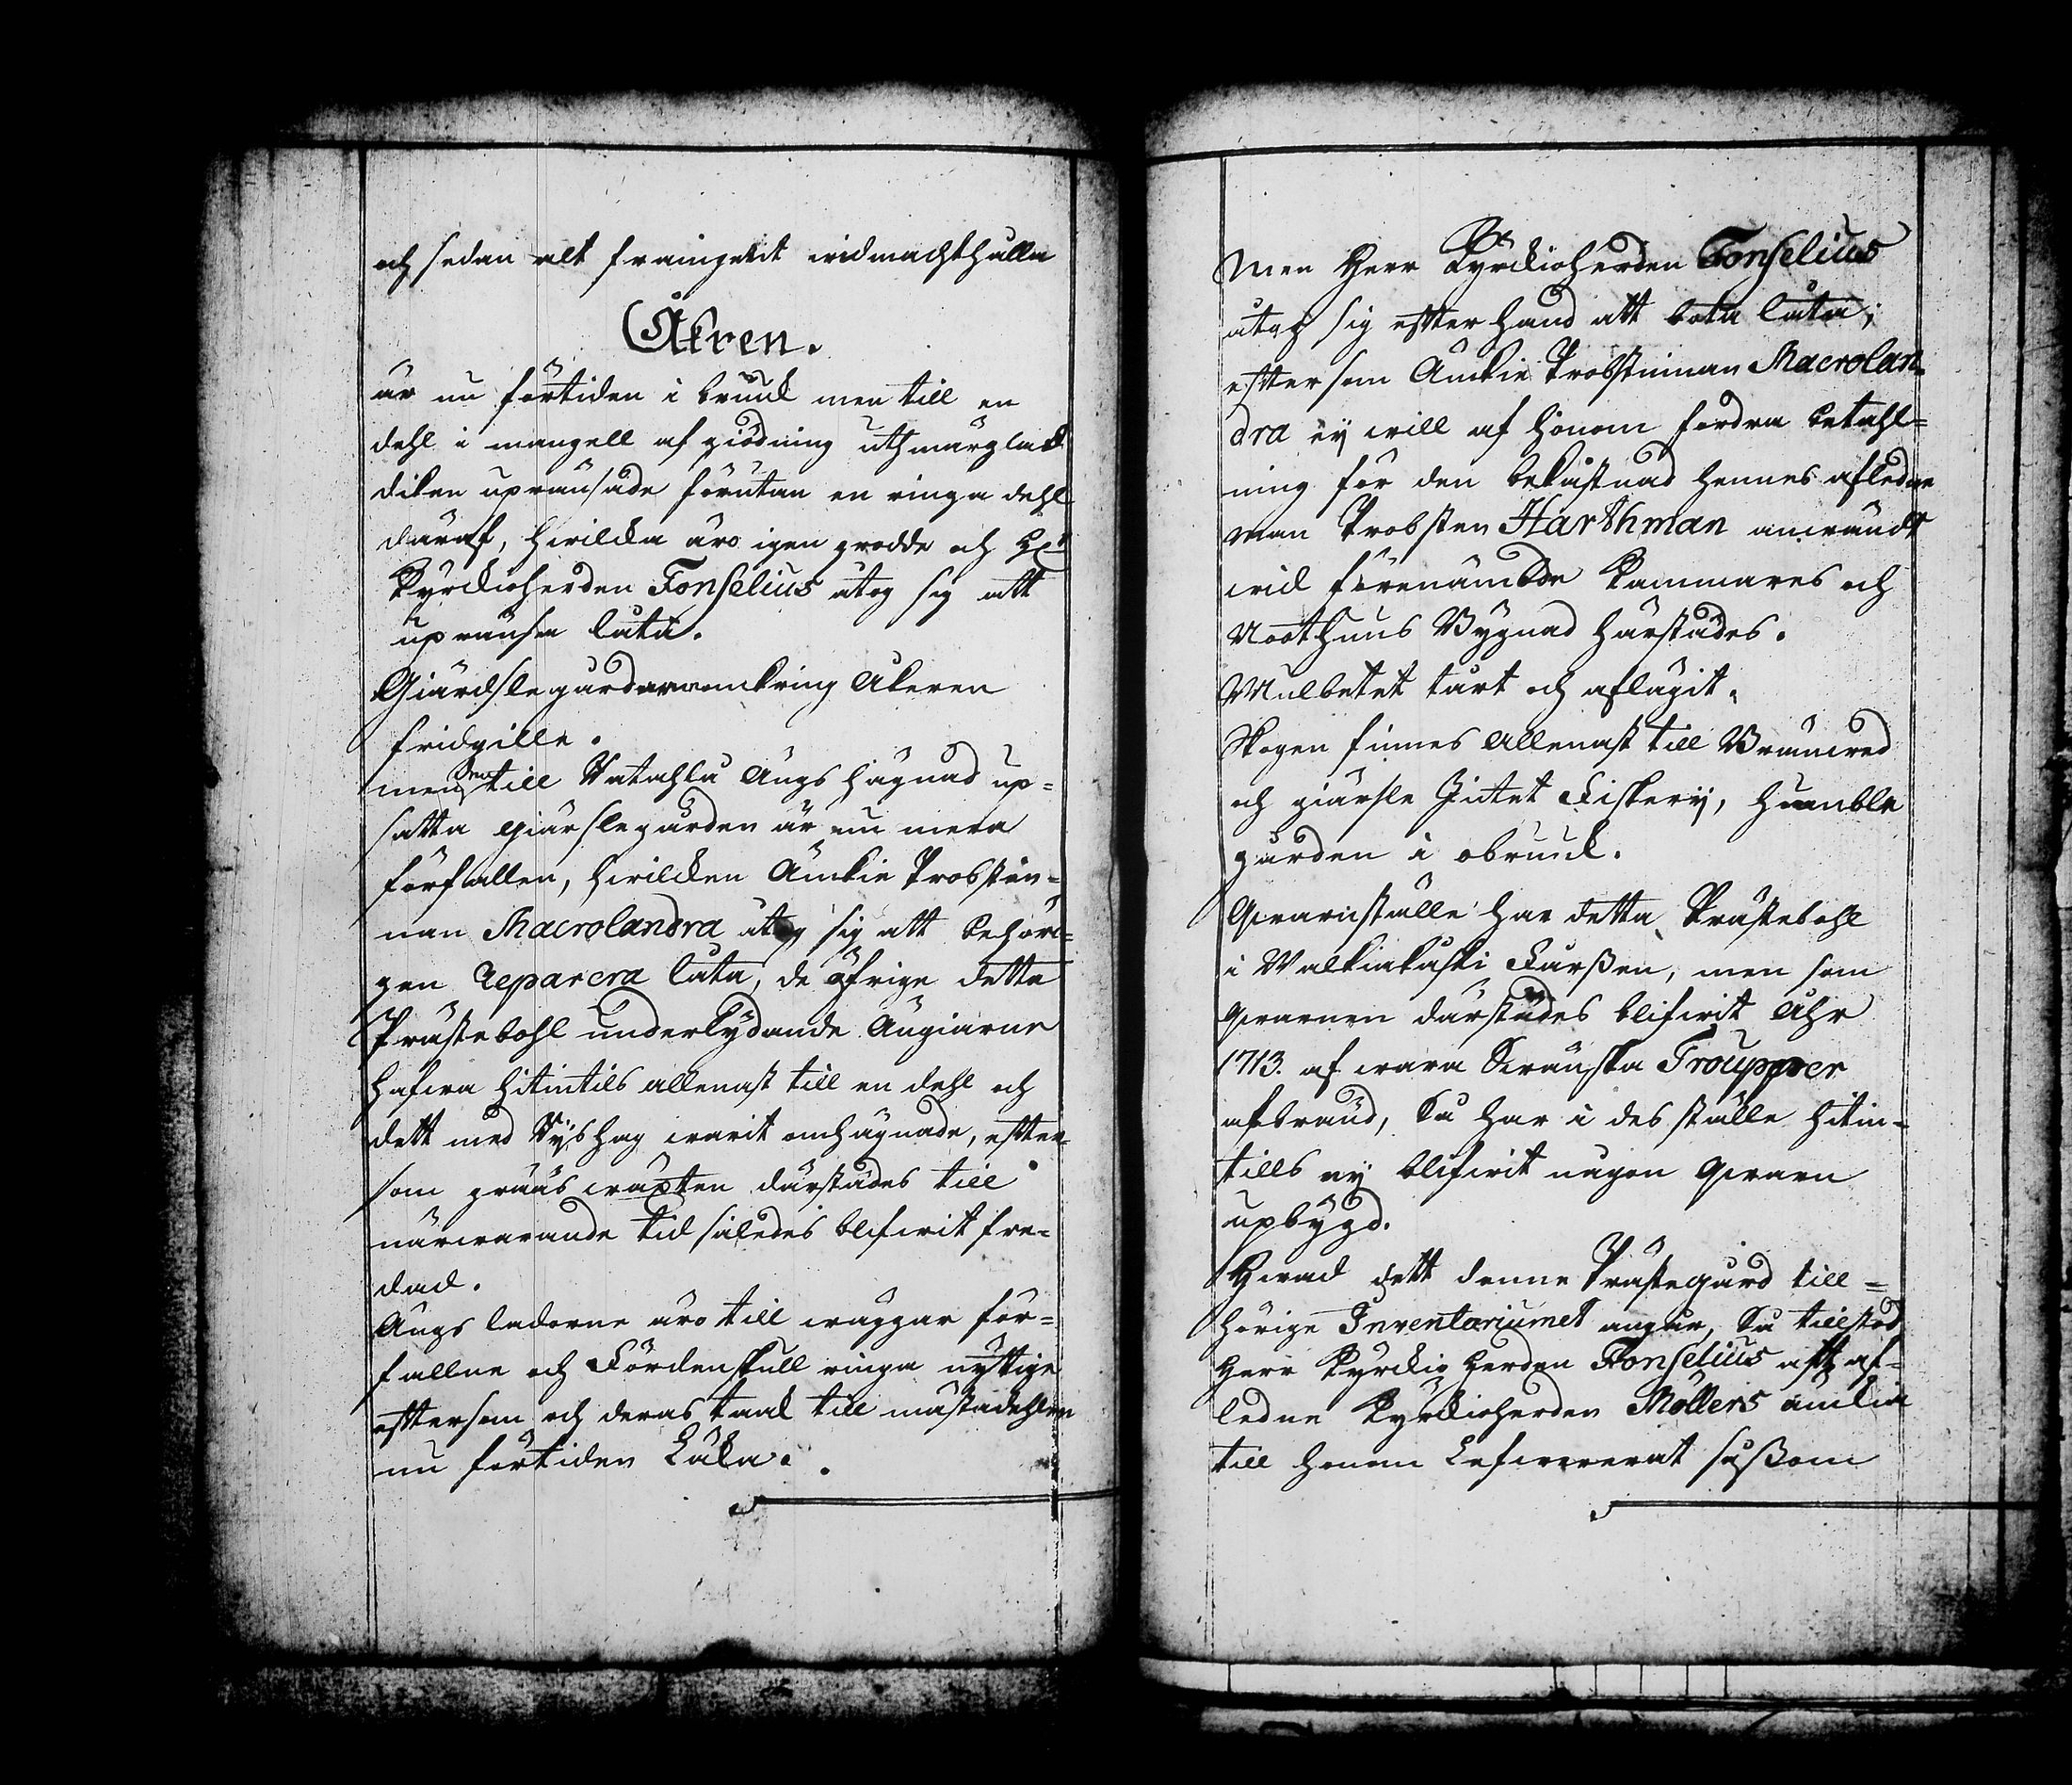 och sedan alt framgent widmachthålla
Åkren.
är nu förtiden i bruuk men till en
dehl i mangell af giödning uthmärglad
diken upränsade förutan en ringa dehl
däraf, hwilcka äro igen grodde och Hr
Kyrckioherden Fonselius åtog sig att
upränsa låta.
Giärdslegårdarna omkring Åkeren
fridgille.
men den till Natahla Ängs hägnad up-
satta giärslegården är nu mera
förfallen, hwilcken Änckie Probstin-
nan Macrolandra åtog sig att behöri-
gen reparera låta, de öfrige detta
Prästebohl underlydande Ängiarne
hafwa hitintils allenast till en dehl och
dett med Rÿshag warit omhägnade, efter-
som gräås wäxten därstädes till
närwarande tid således blifwit fre-
dad.
Ängs ladorne äro till wäggar för-
fallne och Fördenskull ringa nyttige
efftersom och deras taak till mästadehlen
nu förtiden Läka.
Men Herr Kyrckioherden Fonselius
åtog sig effter hand att bota låta;
efftersom Änckie Probstinnan Macrolan-
dra eÿ will af honom fordra betahl-
ning för den bekåstnad hennes afledne
man Probsten Harthman anwändt
wid förenämbde Kammares och
Noothuus Bÿgnad härstädes.
Mulbetet tårt och aflägit.
Skogen finnes allenast till Brännwed
och giärsle Intet Fiskerÿ, humble
gården i obruuk.
Qwarnställe har detta Prästebohl
i Walkiakåski Forßen, men som
qwarnen därstädes blifwit Åhr
1713. af wara Swänska Troupper
afbränd, Så har i des ställe hitin-
tills eÿ blifwit någon qwarn
upbÿgd.
Hwad dett denne Prästegård till-
hörige Inventariumet angår, Så tillstod
Herr Kyrckio Herden Fonselius att af-
ledne Kyrckioherden Mollers änckia
till honom Lefwererat såßom